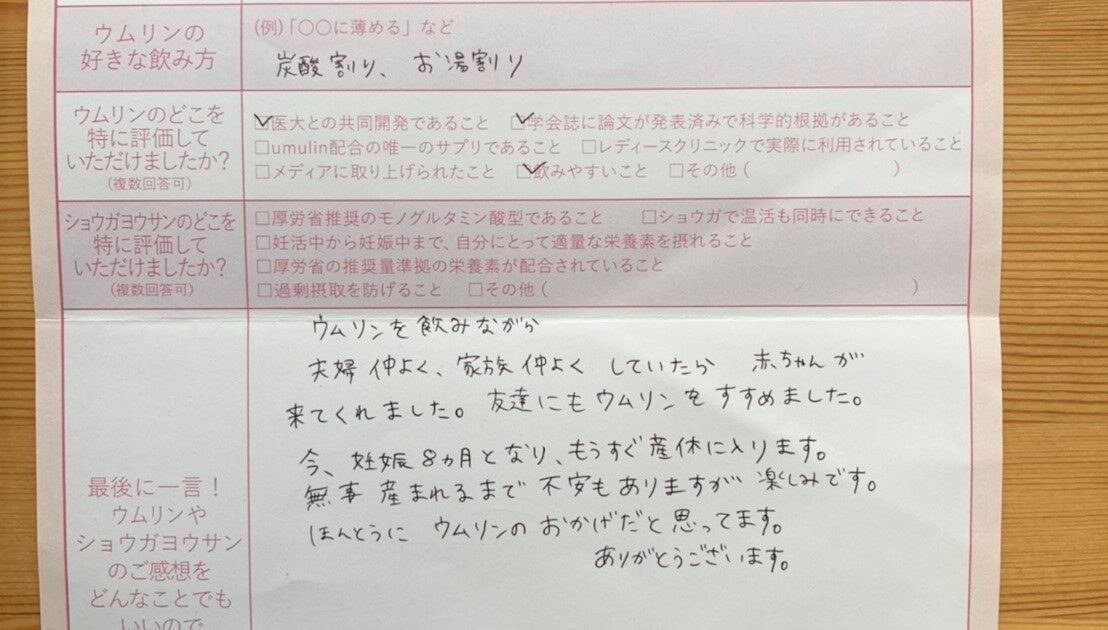 ウムリンの
好きな飲み方
(例)「〇〇に薄める」など
炭酸割り、お湯割り
ウムリンのどこを
特に評価して
いただけましたか?
(複数回答可)
☑医大との共同開発であること ☑学会誌に論文が発表済みで科学的根拠があること
□umulin配合の唯一のサプリであること □レディースクリニックで実際に利用されていること
□メディアに取り上げられたこと ☑飲みやすいこと □その他( )
ショウガヨウサンのどこを
特に評価して
いただけましたか?
(複数回答可)
□厚労省推奨のモノグルタミン酸型であること □ショウガで温活も同時にできること
□妊活中から妊娠中まで、自分にとって適量な栄養素を摂れること
□厚労省の推奨量準拠の栄養素が配合されていること
□過剰摂取を防げること □その他( )
最後に一言!
ウムリンや
ショウガヨウサン
のご感想を
どんなことでも
いいので
ウムリンを飲みながら
夫婦仲よく、家族仲よくしていたら 赤ちゃんが
来てくれました。友達にもウムリンをすすめました。
今、妊娠8ヵ月となり、もうすぐ産休に入ります。
無事産まれるまで不安もありますが楽しみです。
ほんとうにウムリンのおかげだと思ってます。
ありがとうございます。